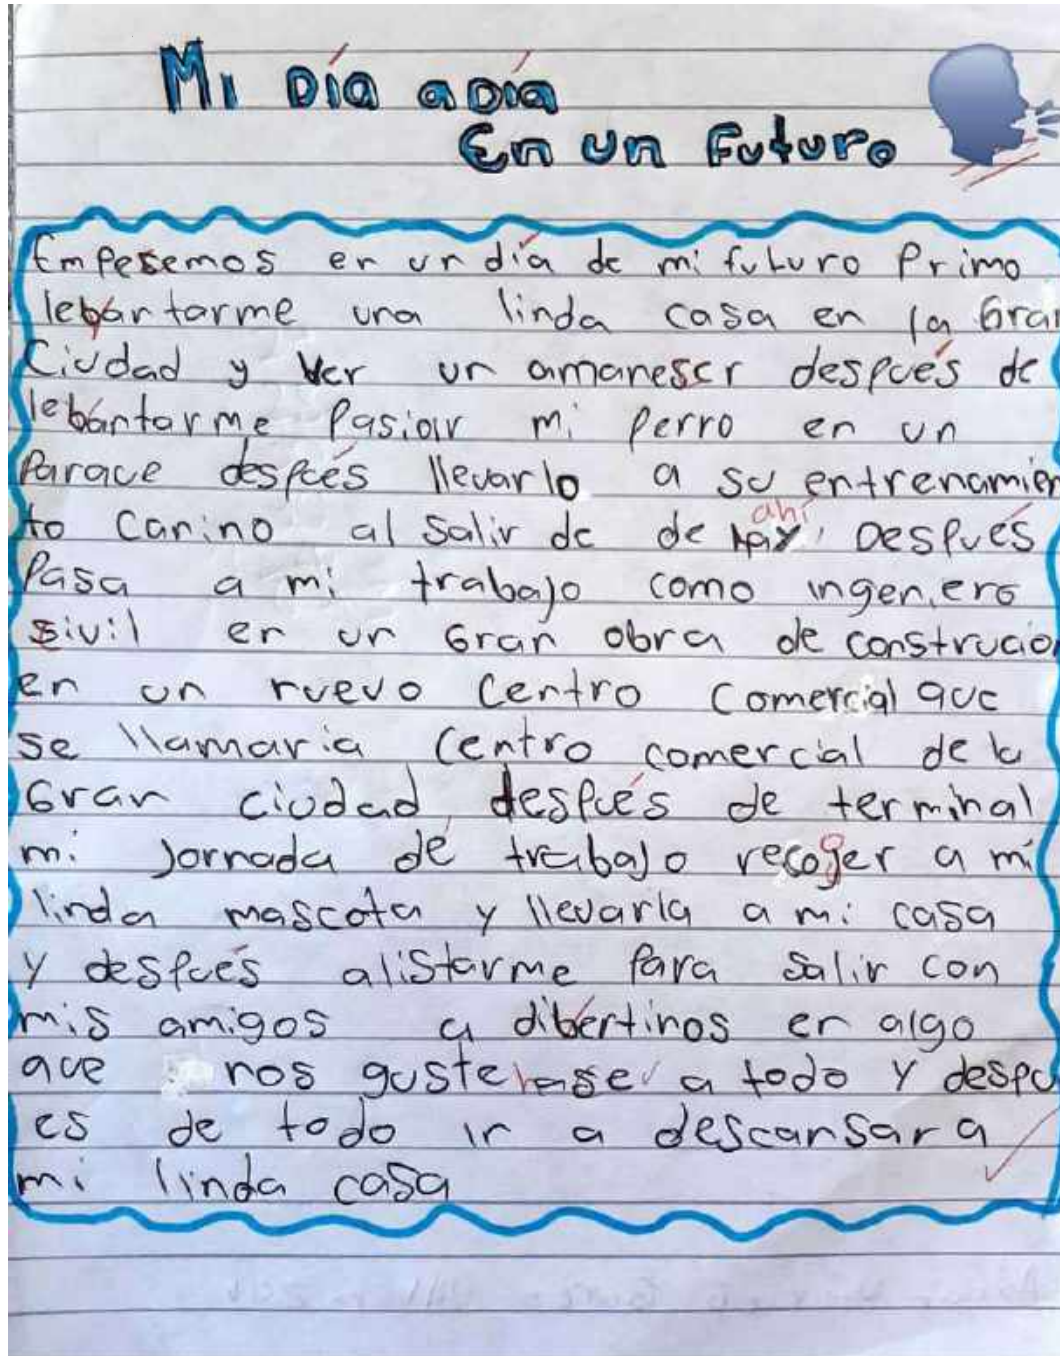 Mi Día a Día
En un Futuro
Empesemos en un día de mi futuro Primo
lebantarme una linda casa en la Gran
Ciudad y Ver un amaneser después de
lebantarme Pasiar mi Perro en un
Parque después llevarlo a su entrenamien
to Canino al salir de de ahí Después
Pasa a mi trabajo como ingeniero
sivil en un Gran obra de construcion
en un nuevo Centro Comercial que
se llamaria Centro comercial de la
Gran ciudad, después de terminal
mi Jornada de trabajo recoger a mi
linda mascota y llevarla a mi casa
Y después alistarme Para salir con
mis amigos a dibertinos en algo
que nos guste a todo Y despu
es de todo ir a descansar a
mi linda casa